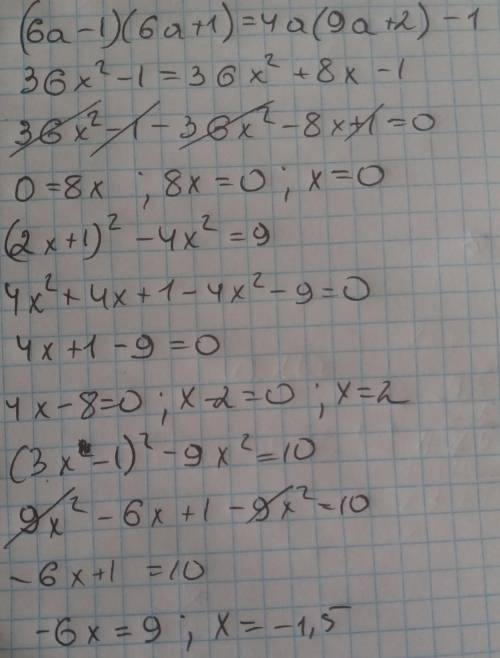 (6a-1)(6a+1)=4a(9a+2)-1
36x²-1=36x²+8x-1
36x²-1-36x²-8x+1=0
0=8x ; 8x=0 ; x=0
(2x+1)²-4x²=9
4x²+4x+1-4x²-9=0
4x+1-9=0
4x-8=0 ; x-2=0 ; x=2
(3x-1)²-9x²=10
9x²-6x+1-9x²=10
-6x+1=10
-6x=9 ; x=-1,5